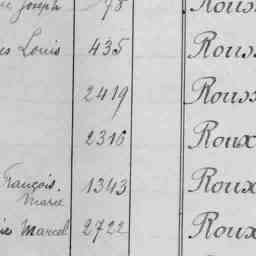 Joseph 78 Rouss
Louis 435 Rouss
2419 Rouss
2316 Roux
François. 1343 Roux
Marie
Marcel 2722 Roux